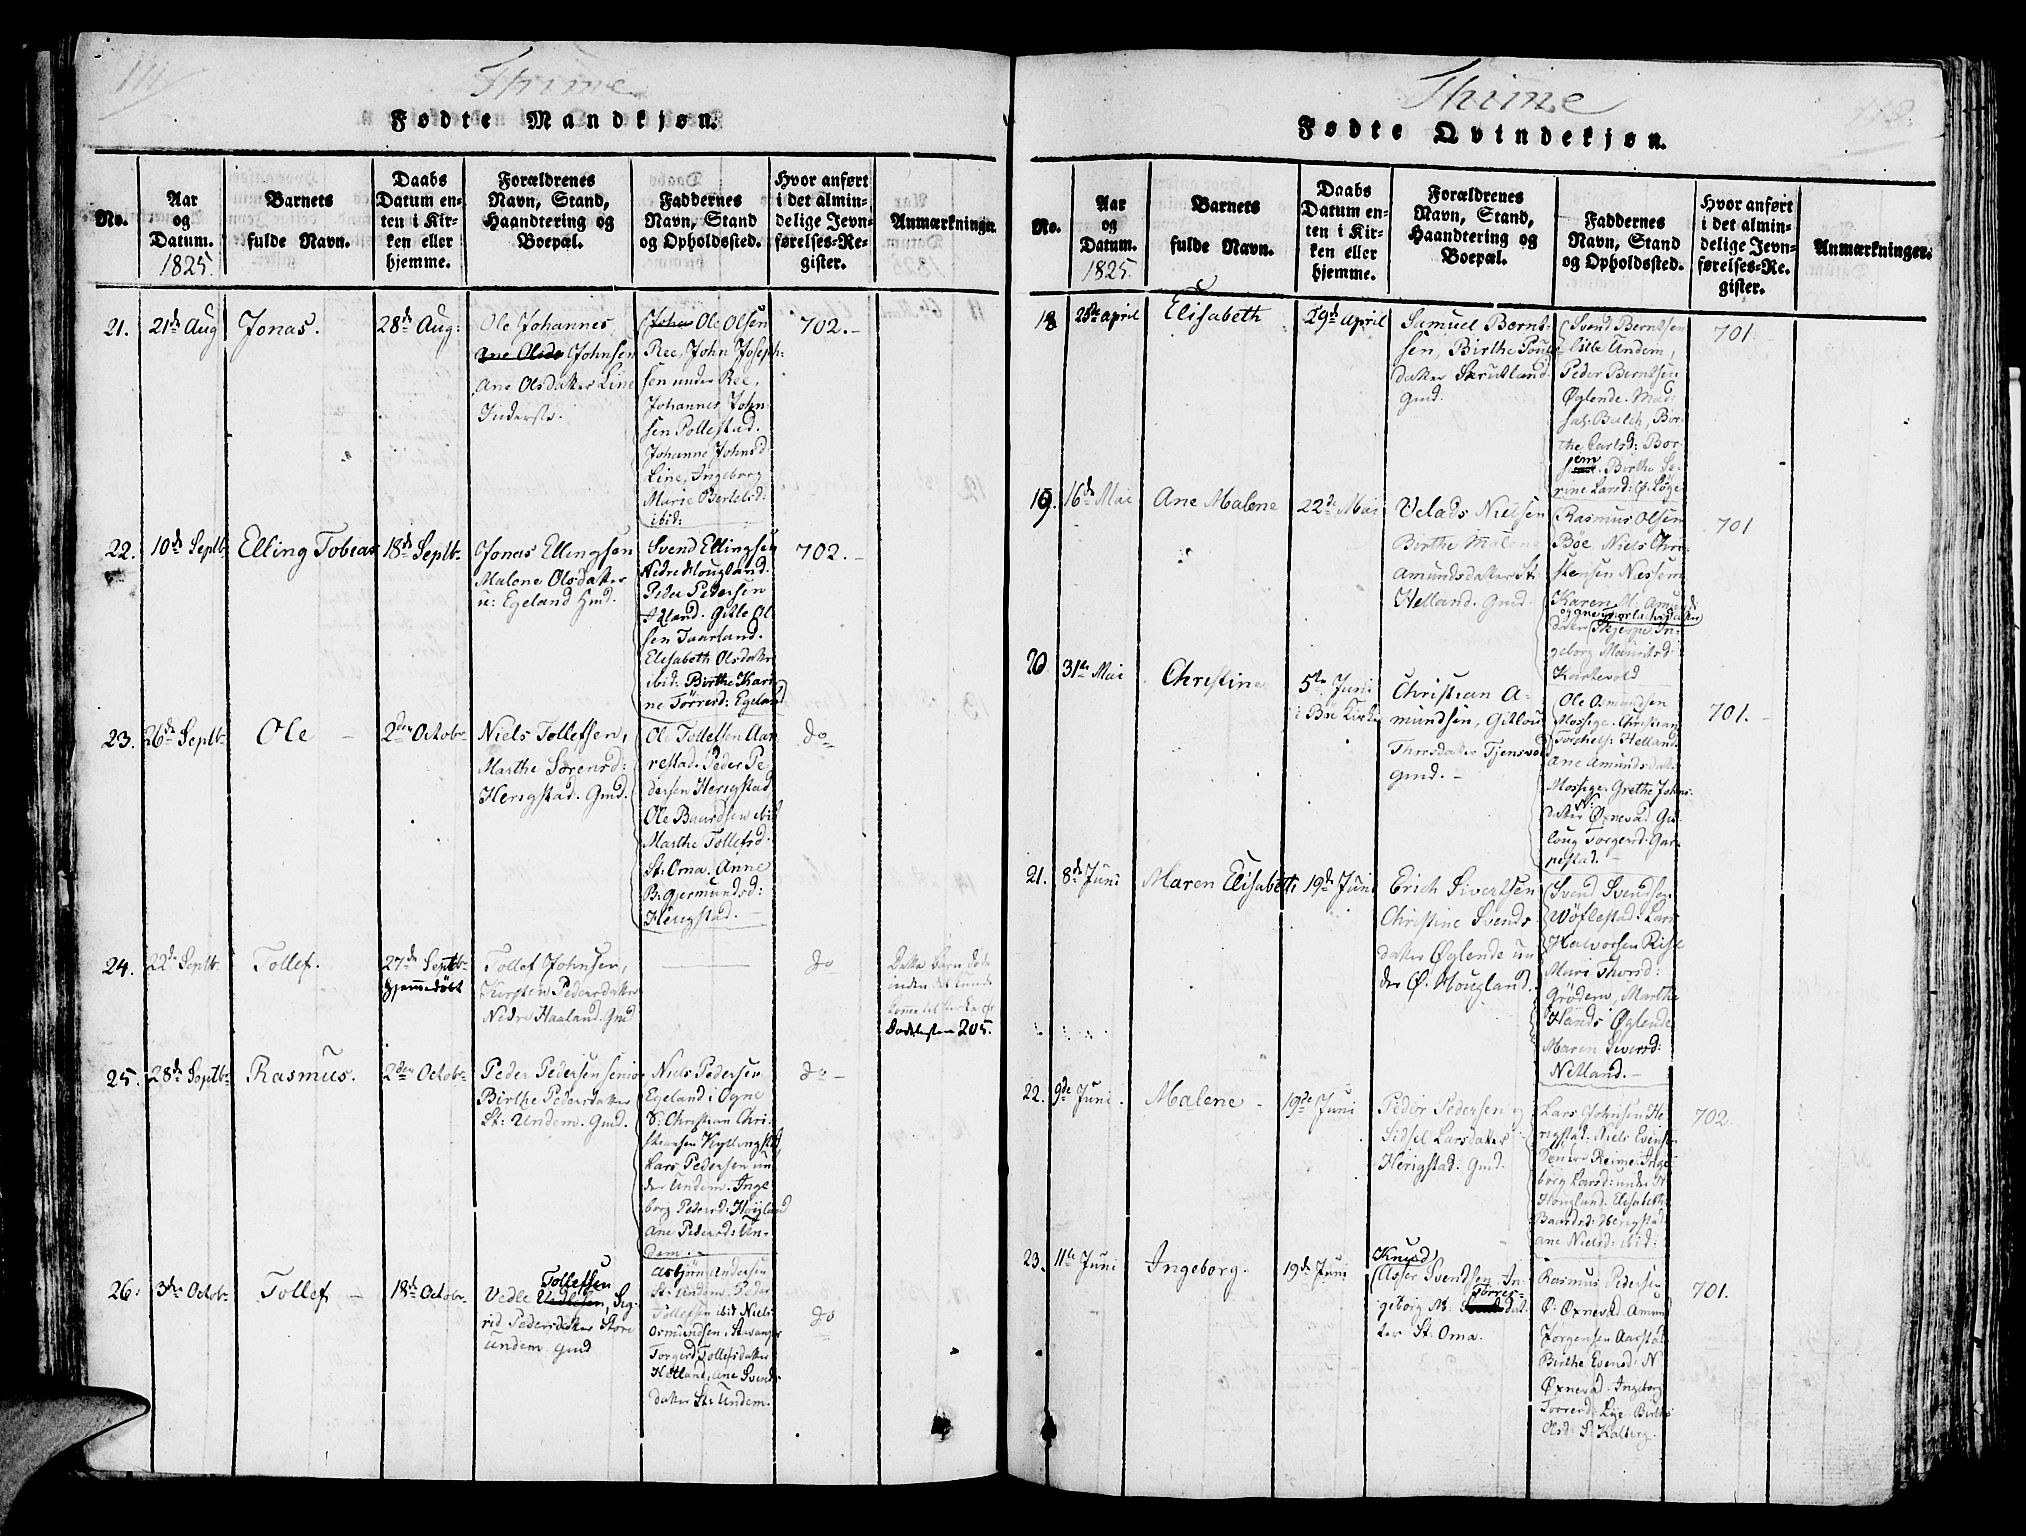 111
Thime
Fødte Mandkjøn.
No.
Aar
og
Datum.
1825.
Barnets
fulde Navn.
Daabs
Datum en-
ten i Kir-
ken eller
hjemme.
Forældrenes
Navn, Stand,
Haandtering og
Boepæl.
Faddernes
Navn, Stand
og Opholdssted.
Hvor anført
i det almin-
delige Jevn-
førelses-Re-
gister.
Anmærkninger.
21.
21de Aug
Jonas.
28de Aug:
Ole Johannes
Ane Olsda Johnsen
Ane Olsdatter Line
Inderste.
John Ole Olsen
Ree, John Joseph-
sen under Ree,
Johannes John-
sen Pollestad.
Johanne Johnsd
Line, Ingeborg
Marie Bertelsd:
ibid:
702.-
22.
10de Septb
Elling Tobias
18de Septb.
Jonas Ellingsen
Malene Olsdatter
u: Egeland Gmd.
Svend Ellingsen
Nedre Hougland.
Peder Pedersen
Gitle Ol
sen Taarland.
Elisabeth Olsdatter
ibid: Birthe Kari
ne Tørresd: Egeland
702.-
23.
26de Septb.
Ole
2den Octobr
Niels Tollefsen,
Marthe Sørensd:
Herigstad. Gmd.
Ole Tollefsen Aar
restad. Peder Pe-
dersen Herigstad
Ole Baardsen ibid
Marthe Tollefsd.
St: Oma. Anne
B: Gjermundsd:
Herigstad.
do
24.
22de Septb.
Tollef.
27de Septb.
hjemmedøbt
Tollef Johnsen,
Kirsten Pedersdatter
Nedre Haaland. Gmd
do
Dette Barn døde
inden det kunde
komme til Kirke cfr
Dødslisten 205.
25.
28de Septb.
Rasmus.
2den Octobr
Peder Pedersen senior
Birthe Pedersdatter
St: Undem. Gmd.
Niels Pedersen
Egeland i Ogne
S: Christian Chri-
stensen Kyllingstad
Lars Pedersen un
der Undem. Inge
borg Pedersd: Høyland
Ane Pedersd: Un-
dem.
do -
26.
3die Octobr
Tollef
18de Octobr
Tollefsen
Vedle Vedlesen, Sig-
rid Pedersdatter Store
Undem Gmd
Asbjørn Andersen
St: Undem. Peder
Tollefsen ibid Niels
Osmundsen i Stavanger
Torgerd Tollefsdatter
Hetland, Ane Svends
datter St: Undem.
do
112.
Thime
Fødte Qvindekjøn.
No.
Aar
og
Datum.
1825.
Barnets
fulde Navn.
Daabs
Datum en-
ten i Kir-
ken eller
hjemme.
Forældrenes
Navn, Stand,
Haandtering og
Boepæl.
Faddernes
Navn, Stand
og Opholdssted.
Hvor anført
i det almin-
delige Jevn-
førelses-Re-
gister.
Anmærkninger.
18
25de April
Elisabeth
29de April
Samuel Bernt-
sen, Birthe Pouls
datter Skrutland
Gmd.
Svend Berntsen
Lille Undem,
Peder Berntsen
Øglende. Mad:
Sal: Balch, Bir-
the Carlsd: Bor-
sem. Birthe Se-
rine Land: Ø: Løge
701.
19.
16de Mai
Ane Malene
22de Mai
Velads Nielsen
Birthe Malene
Amundsdatter St:
Helland. Gmd.
Rasmus Olsen
Bøe, Niels Chri-
stensen Næsem
Karen M. Amunds
datter Skjerpe In-
geborg Mauritsd:
Kartevold
701
20
31te Mai
Christine
5te Juni
i Bøe Kirke
Christian A-
mundsen, Gitlou
Thorsdatter Tjensvold
Gmd. -
Ole Osmundsen
Mossige. Christian
Torchels: Helland
Ane Amundsdatter
Mossige. Grethe Johns
datter N: Øxnevad. Gu-
loug Torgersd: Gar-
pestad.
701.
21.
8de Juni
Maren Elisabeth
19de Juni
Erich Sivertsen
Christine Svends
datter Øglende un
der Ø. Hougland.
Svend Svendsen
Wøflestad. Lars
Halvorsen Rise
Mari Thorsd:
Grødem, Marthe
Hands Øglende
Maren Siversd:
Netland.
22.
9de Juni.
Malene
19de Juni
Peder Pedersen og
Sidsel Larsdatter
Herigstad. Gmd.
Lars Johnsen He-
rigstad. Niels Evinsen
Reime. Inge
borg Larsd: under N
Hougland. Elisabeth
Baardsd: Herigstad
Ane Nielsd: ibid:
702.
23.
11te Juni
Ingeborg.
19de Juni
(Knud)
Asser Svendsen, In-
geborg M. Tørres-
datter St: Oma.
Rasmus Pedersen
Ø: Øxnevad Amund
Jørgensen Aarstad
Birthe Evensd: N
Øxnevad. Ingeborg
Torresd: Lye Birthe
Olsd: S: Kalberg.
701.